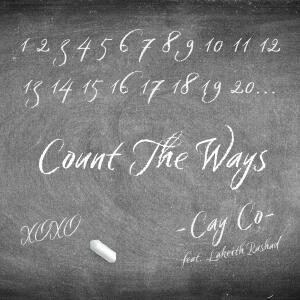 1 2 3 4 5 6 7 8 9 10 11 12
13 14 15 16 17 18 19 20...
Count The Ways
-Cay Co-
feat. Lakeith Rashad
XOXO